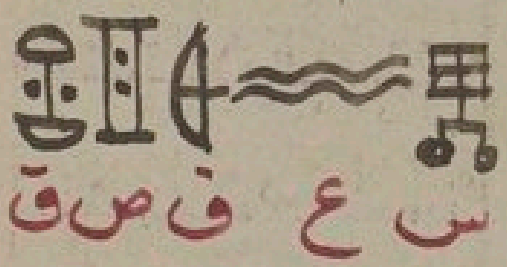 س ع ف ص ق